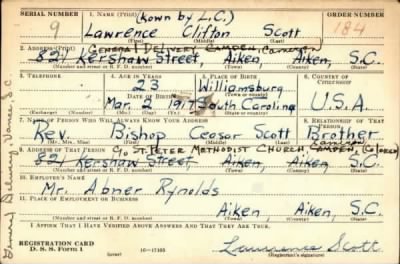 SERIAL NUMBER
1. NAME (Print) (kown by L.C.)
ORDER NUMBER
9
Lawrence Clifton Scott
184
(First) (Middle) (Last)
2. ADDRESS (Print) GENERAL DELIVERY CAMDEN, Cameron
821 Kershaw Street, Aiken, Aiken, S.C.
(Number and street or R. F. D. number) (Town) (County) (State)
3. TELEPHONE
4. AGE IN YEARS
5. PLACE OF BIRTH
6. COUNTRY OF CITIZENSHIP
23
Williamsburg
DATE OF BIRTH
(Town or county)
Mar. 2 1917
South Carolina
U.S.A.
(Exchange) (Number) (Mo.) (Day) (Yr.) (State or country)
7. NAME OF PERSON WHO WILL ALWAYS KNOW YOUR ADDRESS
8. RELATIONSHIP OF THAT PERSON
Rev. Bishop Ceasar Scott Brother
(Mr., Mrs., Miss) (First) (Middle) (Last)
9. ADDRESS OF THAT PERSON C/o ST. PETER METHODIST CHURCH, CAMDEN, (Colored)
Cameron
821 Kershaw Street, Aiken, Aiken, S.C.
(Number and street or R. F. D. number) (Town) (County) (State)
10. EMPLOYER'S NAME
Mr. Abner Rynolds
11. PLACE OF EMPLOYMENT OR BUSINESS
Aiken, Aiken, S.C.
(Number and street or R. F. D. number) (Town) (County) (State)
I AFFIRM THAT I HAVE VERIFIED ABOVE ANSWERS AND THAT THEY ARE TRUE.
REGISTRATION CARD
D. S. S. FORM 1
(over)
16—17105
Lawrence Scott
(Registrant's signature)
General Delivery,
S.C.